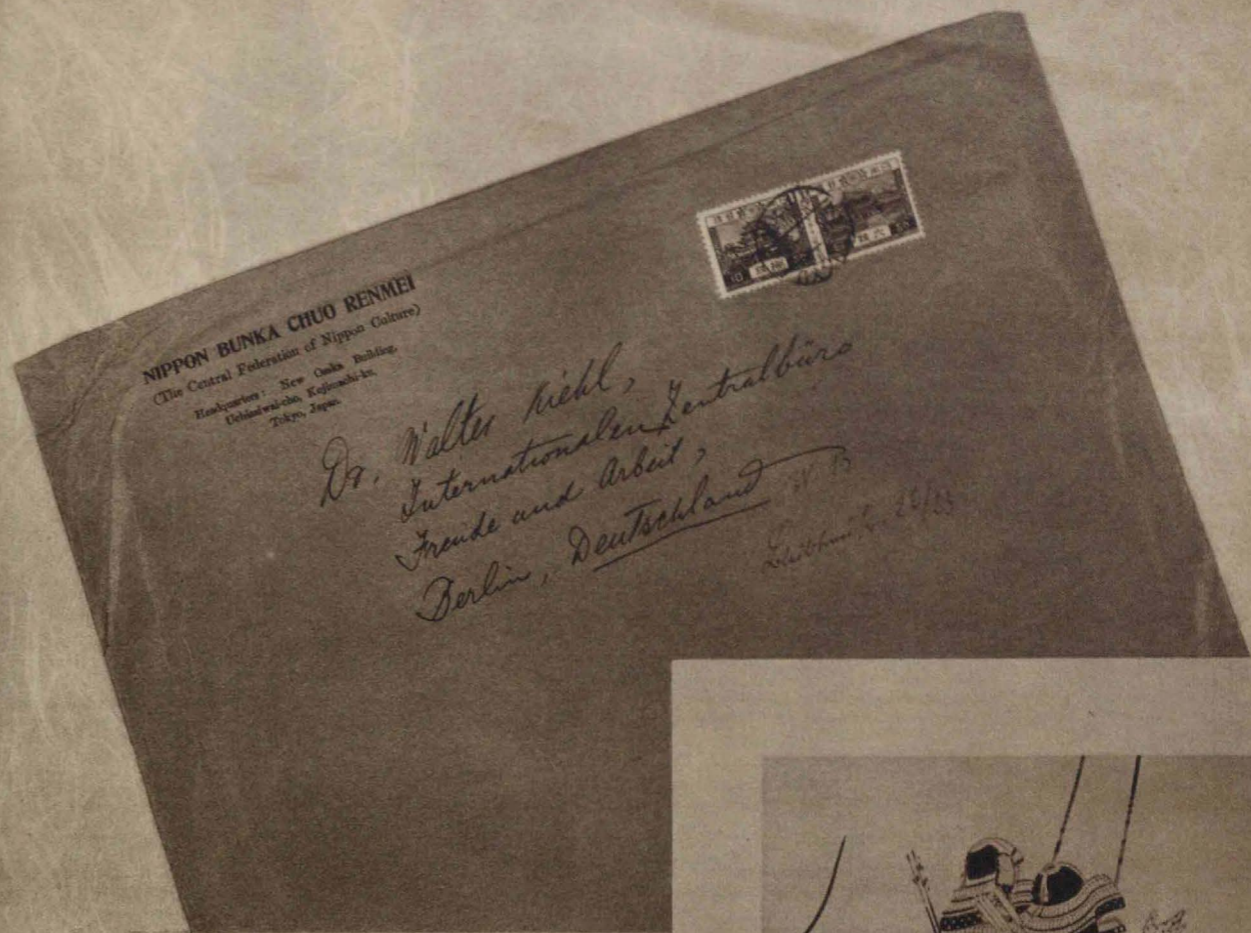 NIPPON BUNKA CHUO RENMEI
(The Central Federation of Nippon Culture)
Headquarters: New Osaka Building,
Uchisaiwai-cho, Kojimachi-ku,
Tokyo, Japan.
Dr. Walter Kiehl,
Internationalen Zentralbüro
Freude und Arbeit,
Berlin, Deutschland